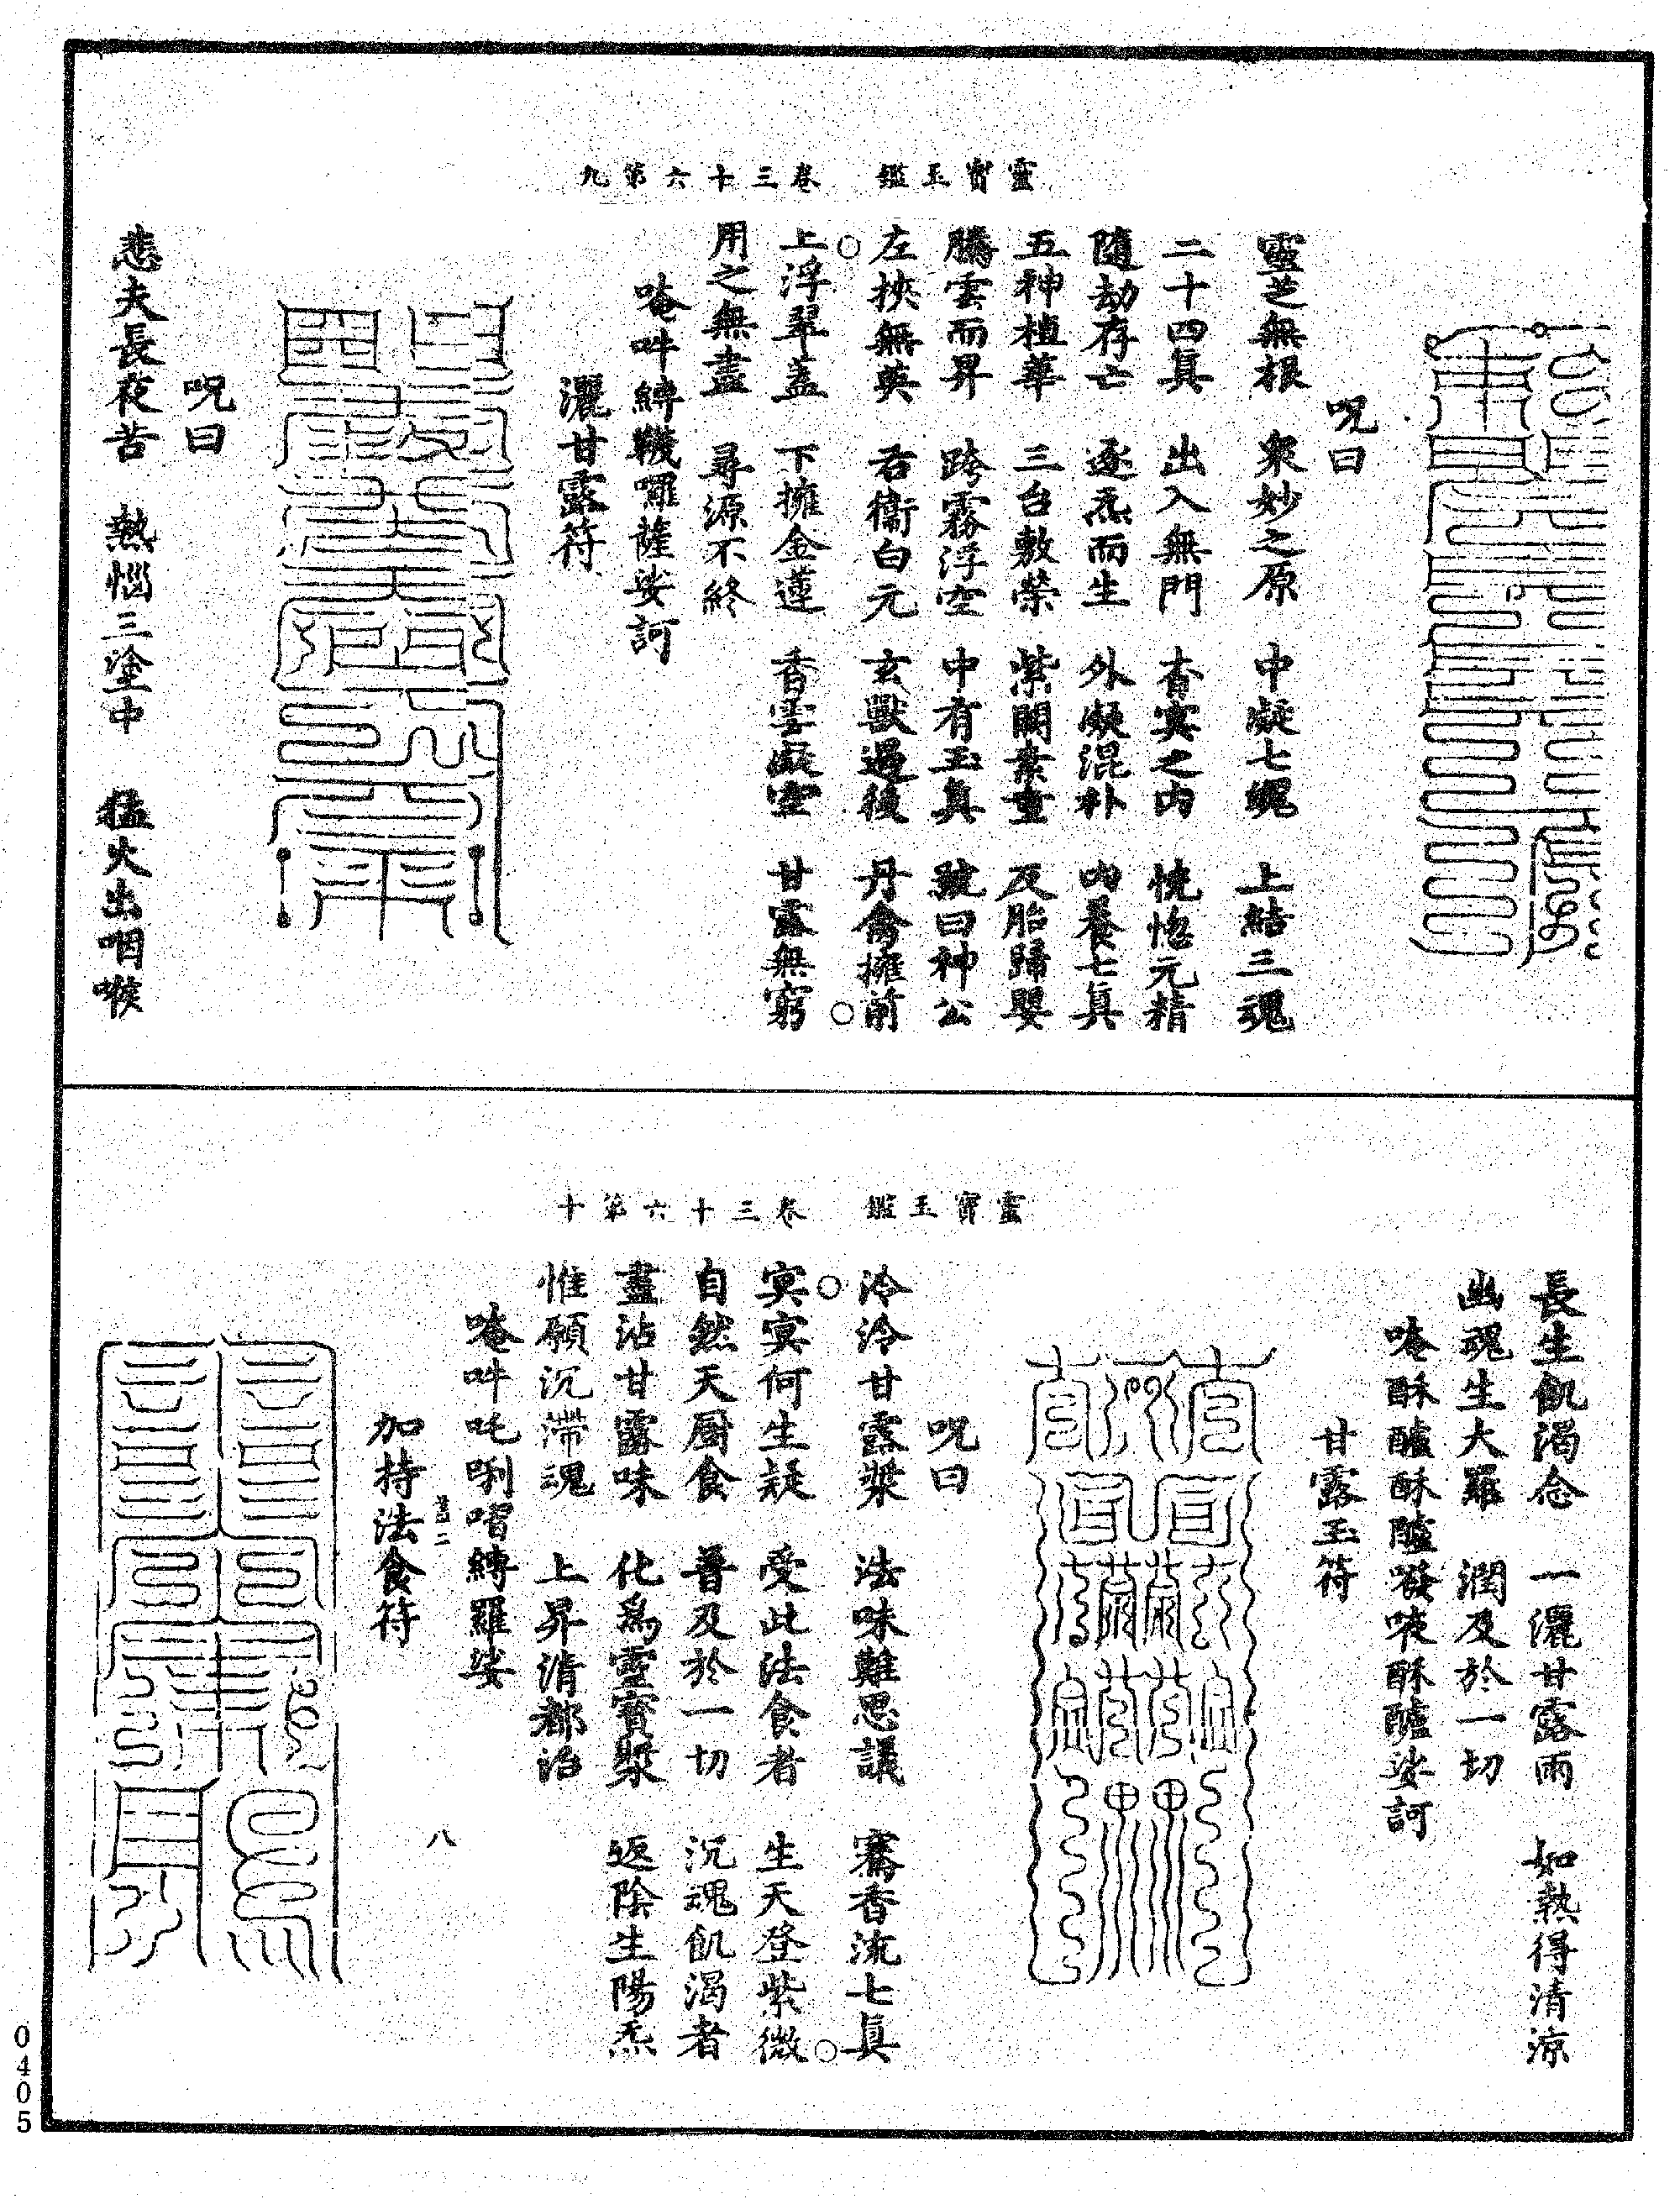 靈寶玉鑑　卷三十六第九
呪曰
靈芝無根　衆妙之原　中凝七魄　上結三魂
二十四真　出入無門　杳冥之内　恍惚元精
隨劫存亡　逐炁而生　外凝混朴　内養七真
五神植華　三台敷榮　紫關素童　及胎歸嬰
騰雲而昇　跨霧浮空　中有玉真　號曰神公
左挾無英　右衛白元　玄獸過後　丹禽擁前
上浮翠盖　下擁金蓮　香雲凝空　甘露無窮
用之無盡　尋源不終
唵吽縛韈囉薩娑訶
灑甘露符
呪曰
悲夫長夜苦　熱惱三塗中　猛火出咽喉
靈寶玉鑑　卷三十六第十
長生飢渴念　一灑甘露雨　如熱得清涼
幽魂生大羅　潤及於一切
唵酥醯酥醯㗚唊酥醯娑訶
甘露玉符
呪曰
泠泠甘露漿　法味難思議　騫香流七真
冥冥何生疑　受此法食者　生天登紫微
自然天厨食　普及於一切　沉魂飢渴者
盡沾甘露味　化為靈寶漿　返陰生陽炁
惟願沉滯魂　上昇清都治
唵吽吒唎嚪縛羅娑
二　八
加持法食符
0405